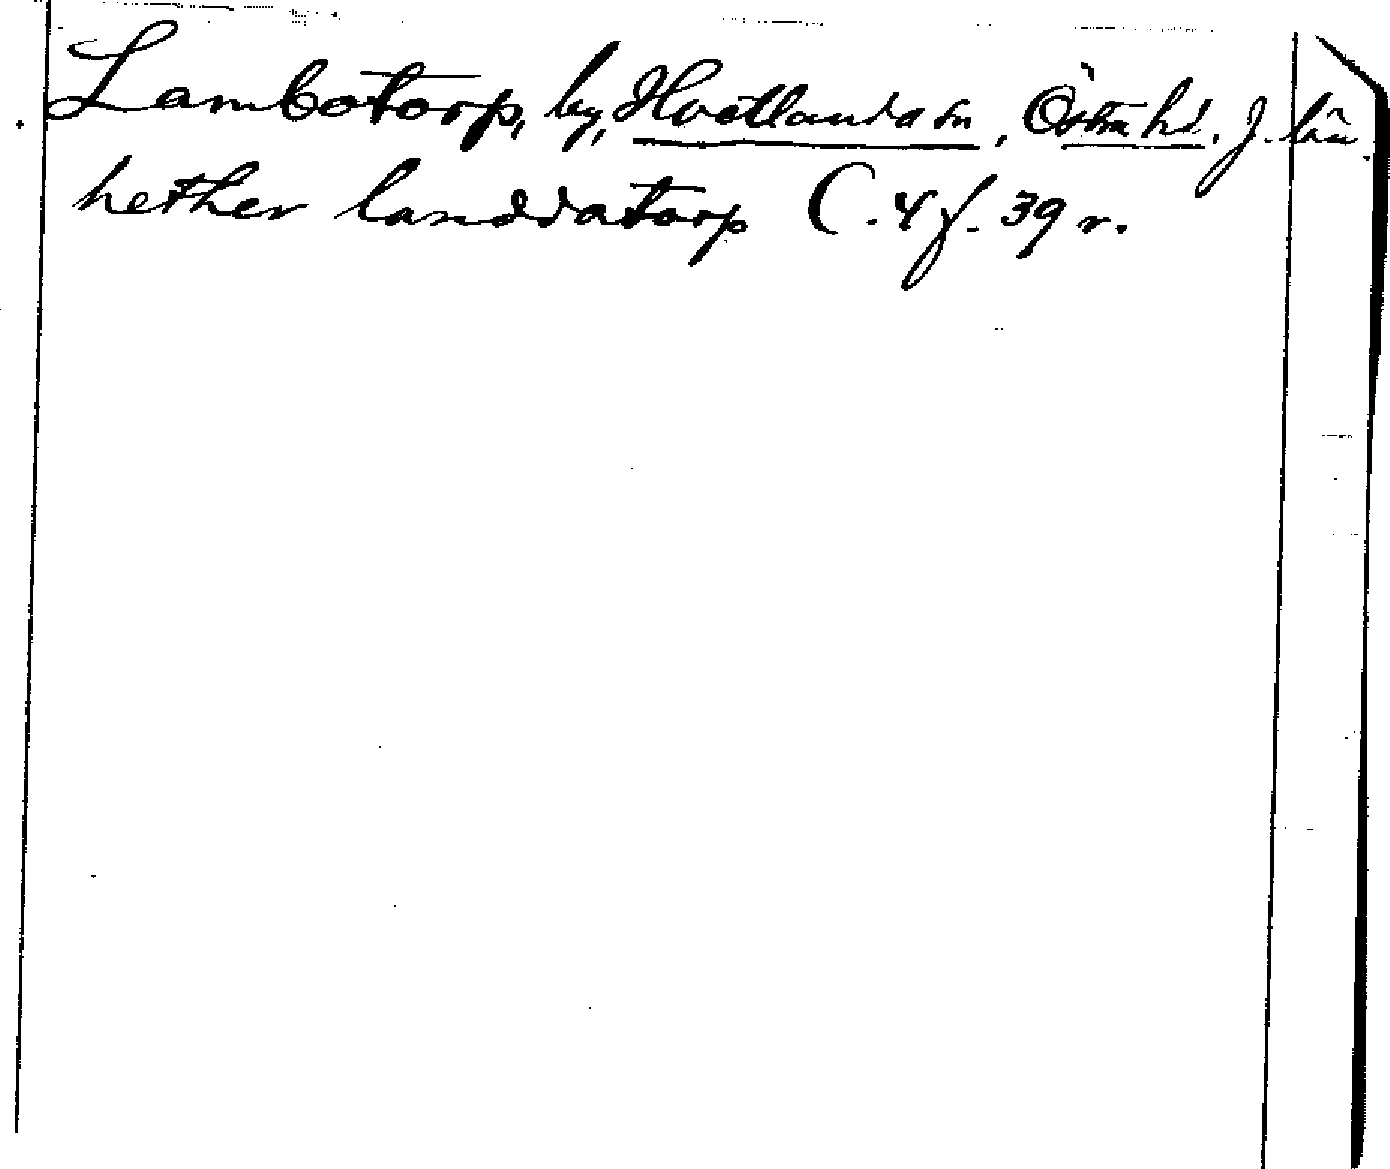 Lambotorp, by, Hvetlanda sn, Östra hd. J. län
hether landzatorp C. 4 f. 39 r.